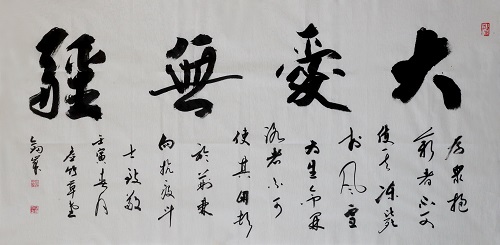 大愛無疆
為衆抱
薪者不可
使其凍斃
於風雪
為生命開
路者不可
使其困頓
於荊棘
向抗疫斗
士致敬
壬寅春月
竹草堂